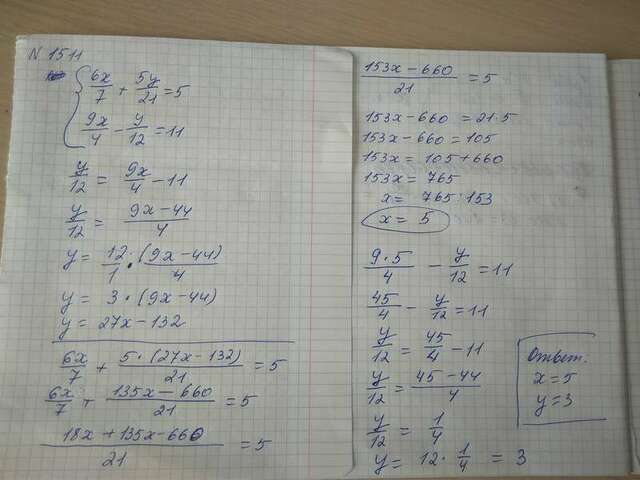 N 1511
6x/7 + 5y/21 = 5
9x/4 - y/12 = 11
y/12 = 9x/4 - 11
y/12 = (9x-44)/4
y = 12/1 · (9x-44)/4
y = 3·(9x-44)
y = 27x-132
6x/7 + 5·(27x-132)/21 = 5
6x/7 + (135x-660)/21 = 5
(18x+135x-660)/21 = 5
(153x-660)/21 = 5
153x-660 = 21·5
153x-660 = 105
153x = 105+660
153x = 765
x = 765:153
x = 5
9·5/4 - y/12 = 11
45/4 - y/12 = 11
y/12 = 45/4 - 11
y/12 = (45-44)/4
y/12 = 1/4
y = 12·1/4 = 3
Ответ.
x=5
y=3